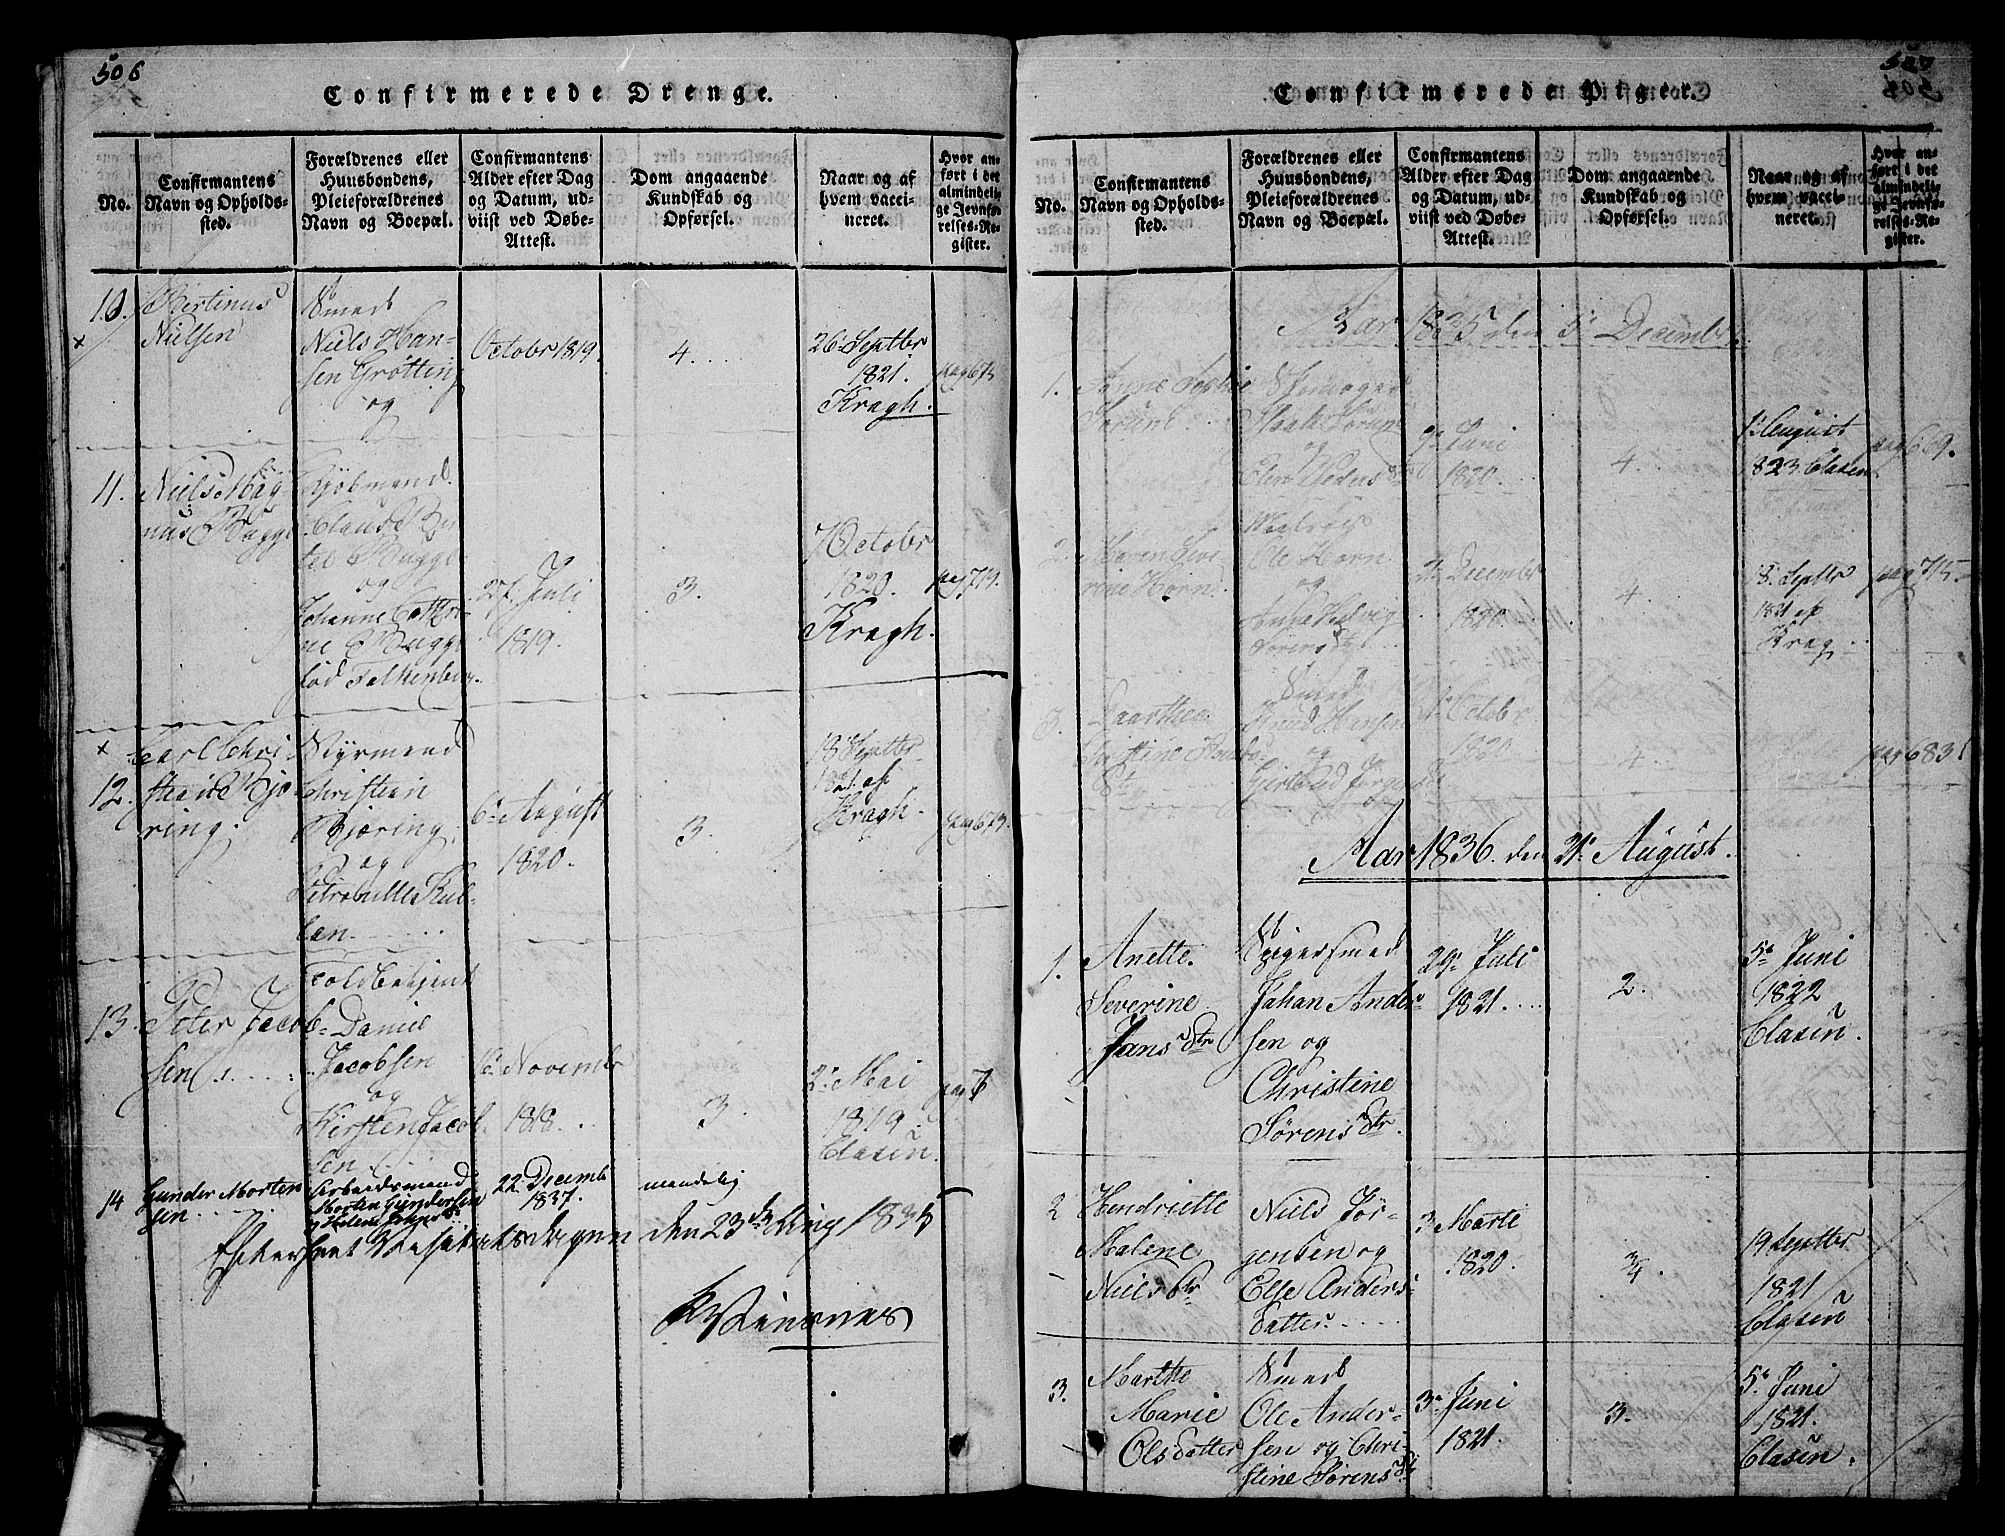 506
Confirmerede Drenge.
No.
Confirmantens
Navn og Opholds-
sted.
Forældrenes eller
Huusbondens,
Pleieforældrenes
Navn og Boepæl.
Confirmantens
Alder efter Dag
og Datum, ud-
viist ved Døbe-
Attest.
Dom angaaende
Kundskab og
Opførsel.
Naar og af
hvem vacci-
neret.
Hvor an-
ført i det
almindeli-
ge Jevnfø-
relses-Re-
gister.
10.
Bertinus
Nielsen
Smed
Niels Han-
sen Grøtting
og
October 1819.
4.
26 Septbr
1821.
Kragh.
pag 675
11.
Niels Mag-
nus Bugge
Kjøbmand
Claus Ber-
tel Bugge
og
Johanne Cathri-
ne Bugge
fød Falkenberg.
27. Juli
1819.
3.
7 Octobr
1820.
Kragh.
pag 719.
12.
Carl Chri
stian Bjø-
ring.
Styrmand
Christian
Bjøring,
og
Petronille Kul-
lan
6. August
1820.
3.
18 Septbr
1821. af
Kragh.
pag 673.
13.
Peter Jacob-
sen
Toldbetjent
Daniel
Jacobsen
og
Kirsten Jacob-
sen
16. Novembr
1818.
3.
2. Mai
1819.
Clasen.
pag 7
14
Gunder Morten
sen
Arbeidsmand
Morten Gundersen
22 Decemb
1837.
maadelig
Efterseet Visitatsdagen den 23de Aug 1835
507
Confirmerede Piger.
No.
Confirmantens
Navn og Opholds-
sted.
Forældrenes eller
Huusbondens,
Pleieforældrenes
Navn og Boepæl.
Confirmantens
Alder efter Dag
og Datum, ud-
viist ved Døbe-
Attest.
Dom angaaende
Kundskab og
Opførsel.
Naar og af
hvem vacci-
neret.
Hvor an-
ført i det
almindeli-
ge Jevnfø-
relses-Re-
gister.
Aar 1835 den 5. December
1.
Sophie
og
9. Juni
1820.
4.
1. August
823 Clasen
pag 669.
2.
Maren Seve
rine Horn.
Ole Horn
og
2. December
1820.
4.
18. Septbr
1821 af
Krag
pag 715
3.
Smed
Knud Hansen
og
Octobr
1820
4.
pag 683
Aar 1836. den 21. August.
1.
Anette
Severine
Jans Dtr
Spigersmed
Johan Ander-
sen og
Christine
Sørens Dtr.
29. Juli
1821.
2.
5. Juni
1822
Clasen.
2
Hendriette
Malene
Niels Dtr
Niels Jør-
gensen og
Else Anders-
datter.
3 Marti
1820.
3/4.
19 Septbr.
1821
Clasen
3.
Marthe
Marie
Olsdatter
Smed
Ole Ander-
sen og Chri-
stine Sørens Dtr
3. Juni
1821.
3.
5. Juni
1821.
Clasen.